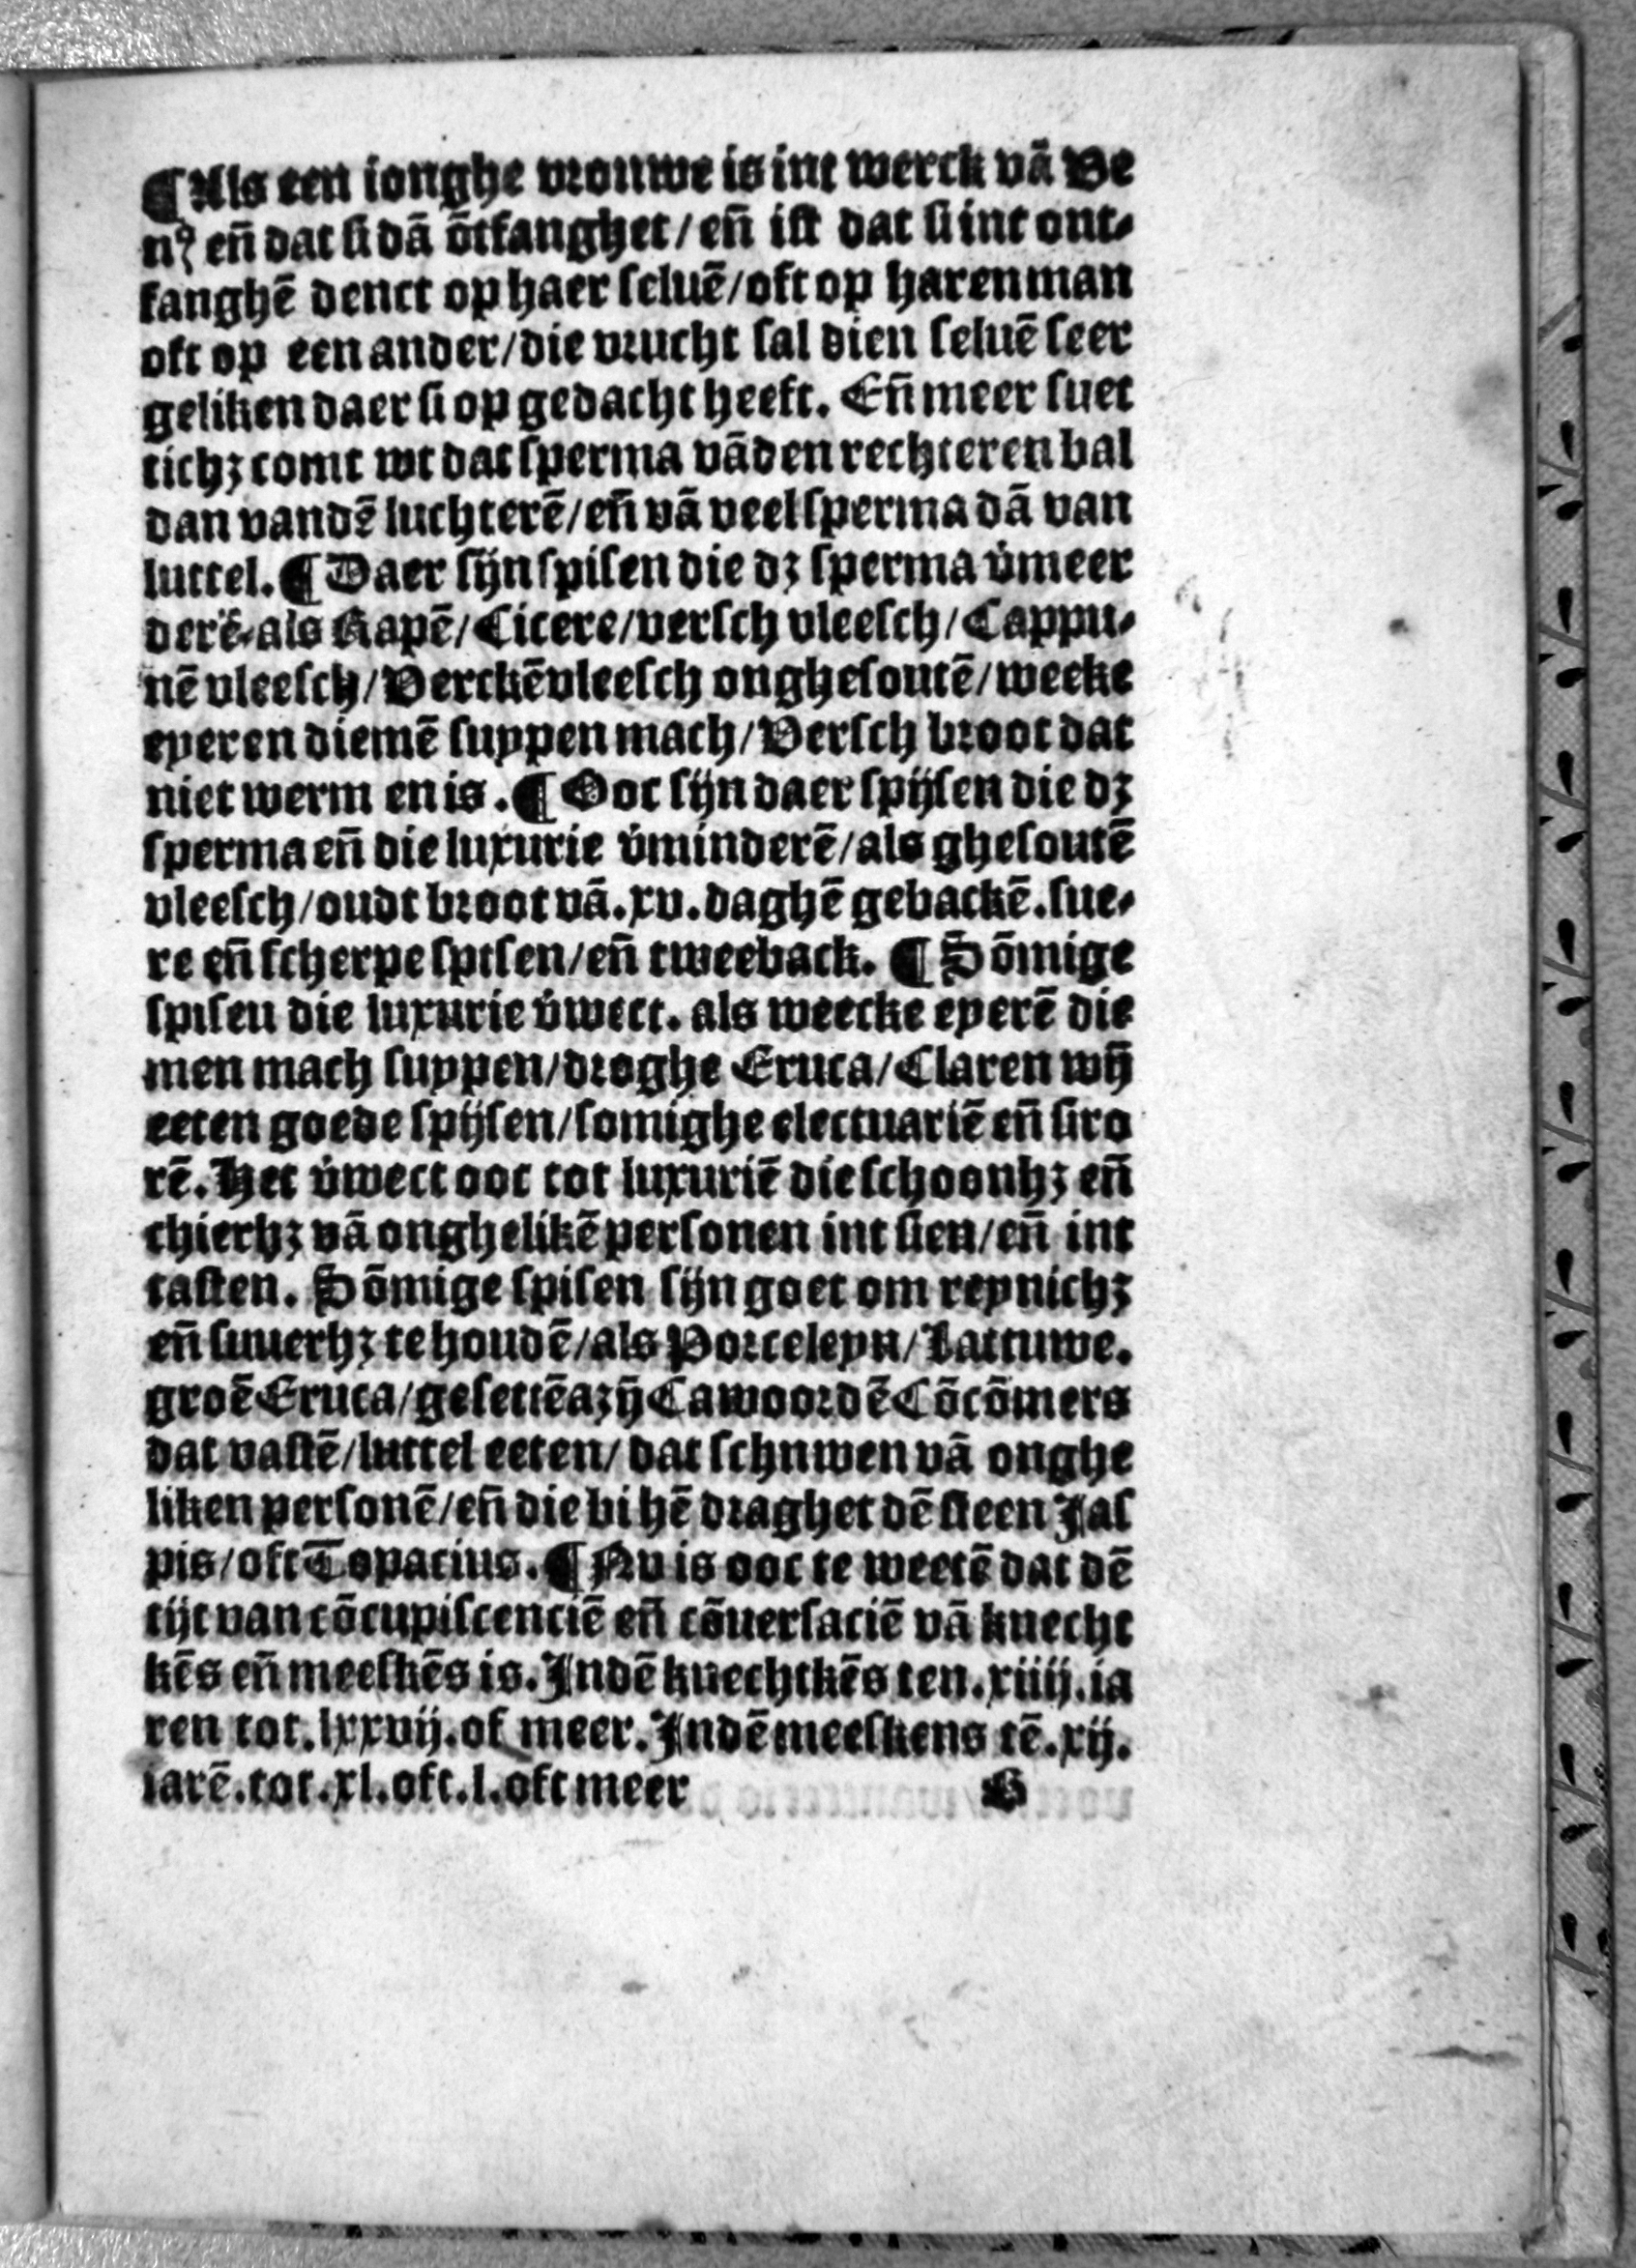 ¶Als een ionghe vrouwe is int werck vā Ve
nꝰ en̄ dat si dā ōtfanghet/en̄ ist dat si int ont⸗
fanghē denct op haer seluē/oft op haren man
oft op een ander/die vrucht sal dien seluē seer
geliken daer si op gedacht heeft. En̄ meer suet
tichꝫ comt wt dat sperma vāden rechteren bal
dan vandē luchterē/en̄ vā veel sperma dā van
luttel.¶Daer sijn spisen die dꝫ sperma v̄meer
derē⸗als Rapē/Cicere/versch vleesch/Cappu⸗
nē vleesch/Verckēvleesch onghesoutē/weeke
eyeren diemē suppen mach/Versch broot dat
niet werm en is.¶Ooc sijn daer spijsen die dꝫ
sperma en̄ die luxurie v̄minderē/als ghesoutē
vleesch/oudt broot vā.xv.daghē gebackē.sue⸗
re en̄ scherpe spisen/en̄ tweeback. ¶Sōmige
spisen die luxurie v̄wect. als weecke eyerē die
men mach suppen/droghe Eruca/Claren wij̄
eeten goede spijsen/somighe electuariē en̄ siro
rē.Het v̄wect ooc tot luxuriē die schoonhꝫ en̄
chierhꝫ vā onghelikē personen int sien/en̄ int
tasten. Sōmige spisen sijn goet om reynichꝫ
en̄ suuerhꝫ te houdē/als Porceleyn/Lattuwe.
groē Eruca/gesettē azij̄ Cawoordē Cōcōmers
dat vastē/luttel eeten/dat schuwen vā onghe
liken personē/en̄ die bi hē draghet dē steen Jas
pis/oft Topacius.¶Nu is ooc te weetē dat dē
tijt van cōcupiscenciē en̄ cōuersaciē vā knecht
kēs en̄ meeskēs is.Jndē knechtkēs ten.xiiij.ia
ren tot.lxxvij.of meer.Jndē meeskens tē.xij.
iarē.tot.xl.oft.l.oft meer G